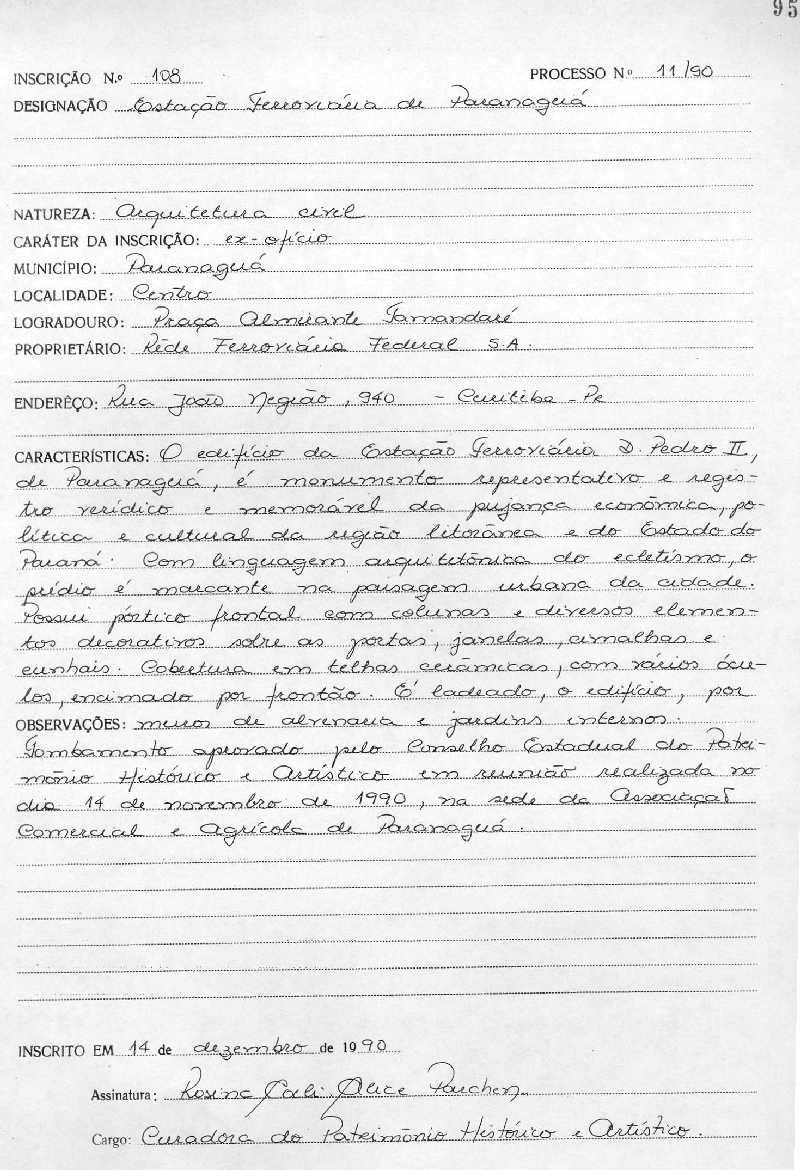 95
INSCRIÇÃO N.º 108 PROCESSO Nº 11/90
DESIGNAÇÃO Estação Ferroviária de Paranaguá
NATUREZA: Arquitetura civil
CARÁTER DA INSCRIÇÃO: ex-ofício
MUNICÍPIO: Paranaguá
LOCALIDADE: Centro
LOGRADOURO: Praça Almirante Tamandaré
PROPRIETÁRIO: Rêde Ferroviária Federal S.A.
ENDERÊÇO: Rua João Negrão, 940 - Curitiba - Pr
CARACTERÍSTICAS: O edifício da Estação Ferroviária D. Pedro II,
de Paranaguá, é monumento representativo e regis-
tro verídico e memorável da pujança econômica, po-
lítica e cultural da região litorânea e do Estado do
Paraná. Com linguagem arquitetônica do ecletismo, o
prédio é marcante na paisagem urbana da cidade.
Possui pórtico frontal com colunas e diversos elemen-
tos decorativos sobre as portas, janelas, cimalhas e
cunhais. Cobertura em telhas cerâmicas, com vários ócu-
los, encimado por frontão. É ladeado, o edifício, por
OBSERVAÇÕES: muros de alvenaria e jardins internos.
Tombamento aprovado pelo Conselho Estadual do Patri-
mônio Histórico e Artístico em reunião realizada no
dia 14 de novembro de 1990, na sede da Associação
Comercial e Agrícola de Paranaguá.
INSCRITO EM 14 de dezembro de 1990
Assinatura: Rosina Alice Parchen
Cargo: Curadora do Patrimônio Histórico e Artístico.